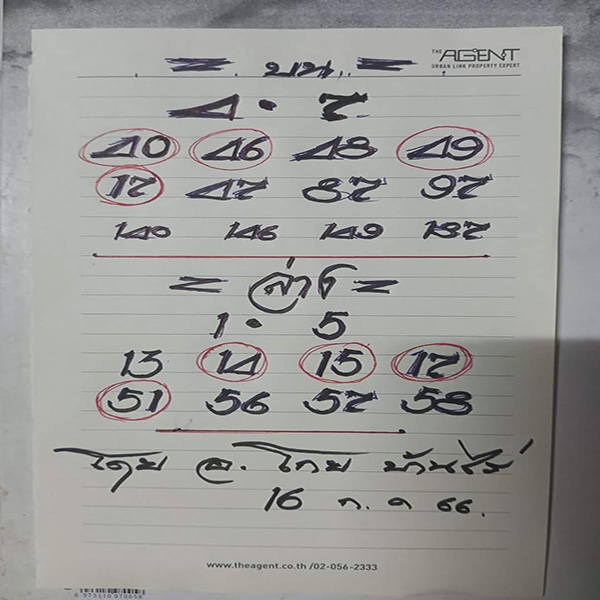 THE AGENT
URBAN LINK PROPERTY EXPERT
= บน =
4 · 7
40 46 48 49
17 47 87 97
140 146 149 187
= ล่าง =
1 · 5
13 14 15 17
51 56 57 58
โดย อ. โกย บ้านไร่
16 ก.ค 66.
www.theagent.co.th /02-056-2333